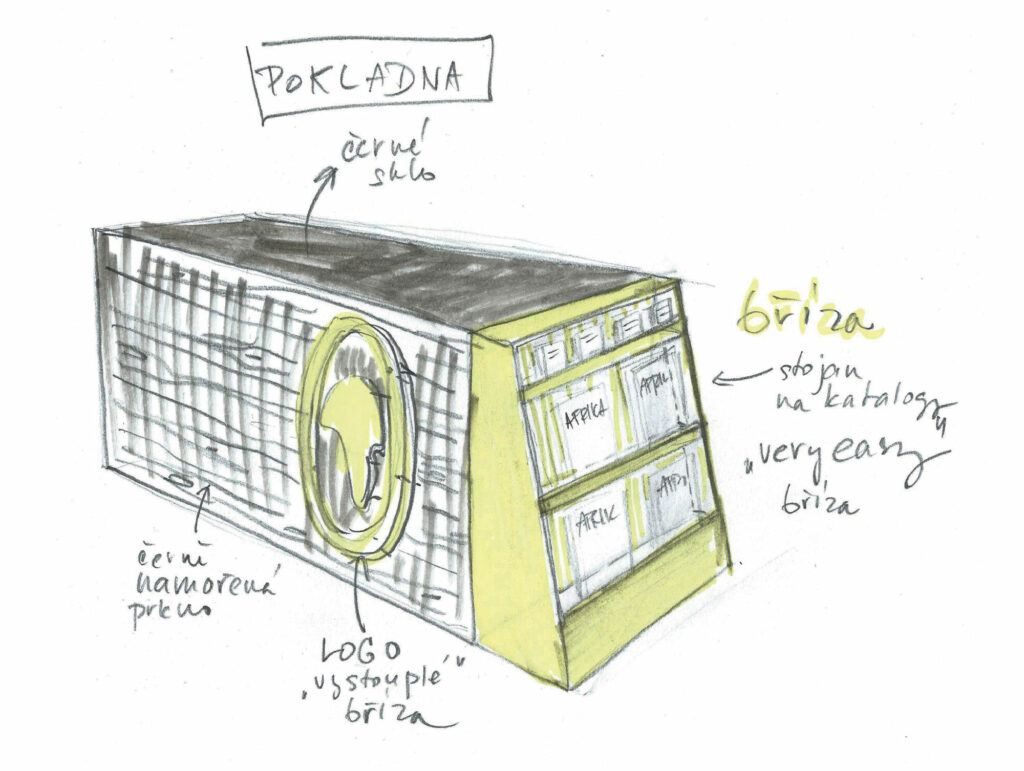 POKLADNA
černé
sklo
bříza
stojan
na katalogy
„very easy"
bříza
AFRIKA
AFRIK
AFRIK
AFRI
černě
namořená
prkna
LOGO
„vystouplé"
bříza